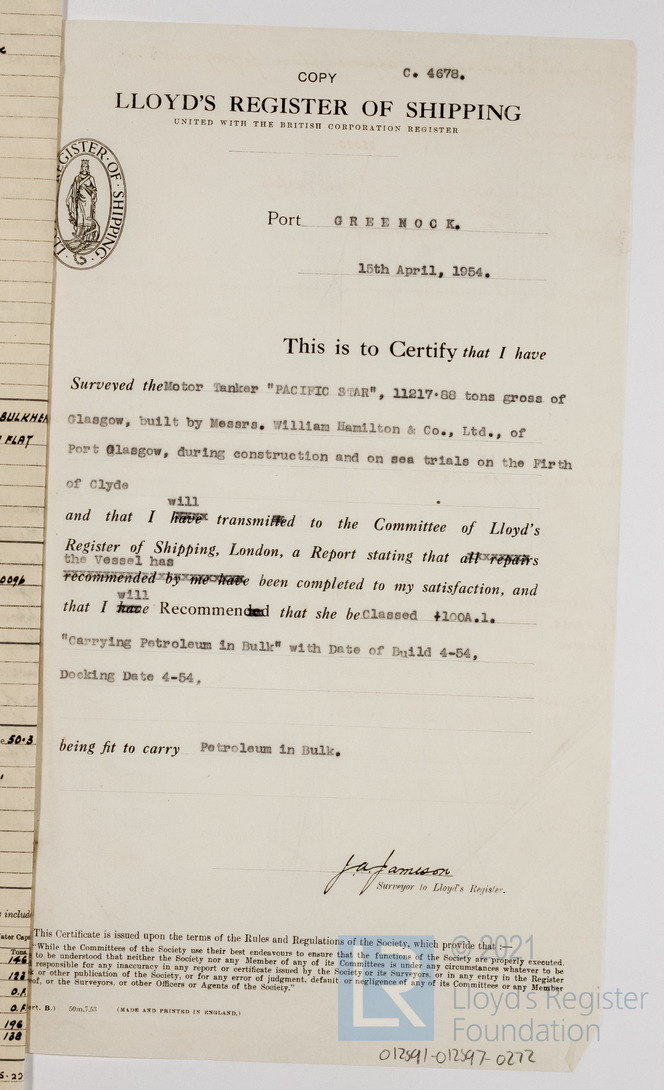 COPY
C. 4678.
LLOYD'S REGISTER OF SHIPPING
UNITED WITH THE BRITISH CORPORATION REGISTER
REGISTER·OF·SHIPPING·
Port GREENOCK.
15th April, 1954.
This is to Certify that I have
Surveyed the Motor Tanker "PACIFIC STAR", 11217·88 tons gross of
Glasgow, built by Messrs. William Hamilton & Co., Ltd., of
Port Glasgow, during construction and on sea trials on the Firth
of Clyde
will
and that I have transmitted to the Committee of Lloyd's
Register of Shipping, London, a Report stating that all repairs
the Vessel has
recommended by me have been completed to my satisfaction, and
will
that I have Recommended that she be Classed +100A.1.
"Carrying Petroleum in Bulk" with Date of Build 4-54,
Docking Date 4-54,
being fit to carry Petroleum in Bulk.
J.A. Jameson
Surveyor to Lloyd's Register.
This Certificate is issued upon the terms of the Rules and Regulations of the Society, which provide that :—
"While the Committees of the Society use their best endeavours to ensure that the functions of the Society are properly executed,
to be understood that neither the Society nor any Member of any of its Committees is under any circumstances whatever to be
responsible for any inaccuracy in any report or certificate issued by the Society or its Surveyors, or in any entry in the Register
or other publication of the Society, or for any error of judgment, default or negligence of any of its Committees or any Member
of, or the Surveyors, or other Officers or Agents of the Society."
ert. B.) 50m,7,53 (MADE AND PRINTED IN ENGLAND.)
© 2021
LR
Lloyd's Register
Foundation
012591-012597-0272
BULKHEA
FLAT
0096
50·3
includ
ater Cap
Tons
146
122
O.F.
O.F.
196
138
5.22